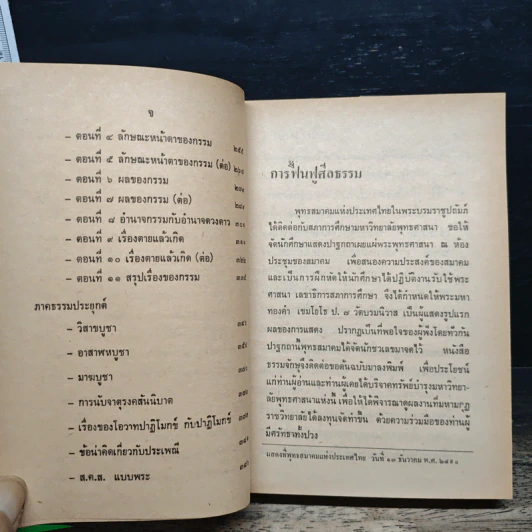 จ
- ตอนที่ ๔ ลักษณะหน้าตาของกรรม
- ตอนที่ ๕ ลักษณะหน้าตาของกรรม (ต่อ)
- ตอนที่ ๖ ผลของกรรม
- ตอนที่ ๗ ผลของกรรม (ต่อ)
- ตอนที่ ๘ อำนาจกรรมกับอำนาจดวงดาว
- ตอนที่ ๙ เรื่องตายแล้วเกิด
- ตอนที่ ๑๐ เรื่องตายแล้วเกิด (ต่อ)
- ตอนที่ ๑๑ สรุปเรื่องของกรรม
ภาคธรรมประยุกต์
- วิสาขบูชา
- อาสาฬหบูชา
- มาฆบูชา
- การนับจาตุรงคสันนิบาต
- เรื่องของโอวาทปาฏิโมกข์ กับปาฏิโมกข์
- ข้อน่าคิดเกี่ยวกับประเพณี
- ส.ค.ส. แบบพระ
การฟื้นฟูศีลธรรม
พุทธสมาคมแห่งประเทศไทยในพระบรมราชูปถัมภ์
ได้ติดต่อกับสภาการศึกษามหาวิทยาลัยพุทธศาสนา ขอให้
จัดนักศึกษาแสดงปาฐกถาเผยแผ่พระพุทธศาสนา ณ ห้อง
ประชุมของสมาคม เพื่อสนองความประสงค์ของสมาคม
และเป็นการฝึกหัดให้นักศึกษาได้ปฏิบัติงานรับใช้พระ
ศาสนา เลขาธิการสภาการศึกษา จึงได้กำหนดให้พระมหา
ทองคำ เขมโยโธ ป. ๗ วัดบรมนิวาส เป็นผู้แสดงรูปแรก
ผลของการแสดง ปรากฏเป็นที่พอใจของผู้ฟังโดยทั่วกัน
ปาฐกถานี้พุทธสมาคมได้จัดนักชวเลขมาจดไว้ หนังสือ
ธรรมจักษุจึงติดต่อขอต้นฉบับมาลงพิมพ์ เพื่อประโยชน์
แก่ท่านผู้อ่านและท่านผู้เคยได้บริจาคทรัพย์บำรุงมหาวิทยา-
ลัยพุทธศาสนาแห่งนี้ เพื่อให้ได้พิจารณาดูผลงานที่มหามกุฏ
ราชวิทยาลัยได้ลงทุนจัดทำขึ้น ด้วยความร่วมมือของท่านผู้
มีศรัทธาทั้งปวง
แสดงที่พุทธสมาคมแห่งประเทศไทย วันที่ ๑๓ ธันวาคม พ.ศ. ๒๔๙๐